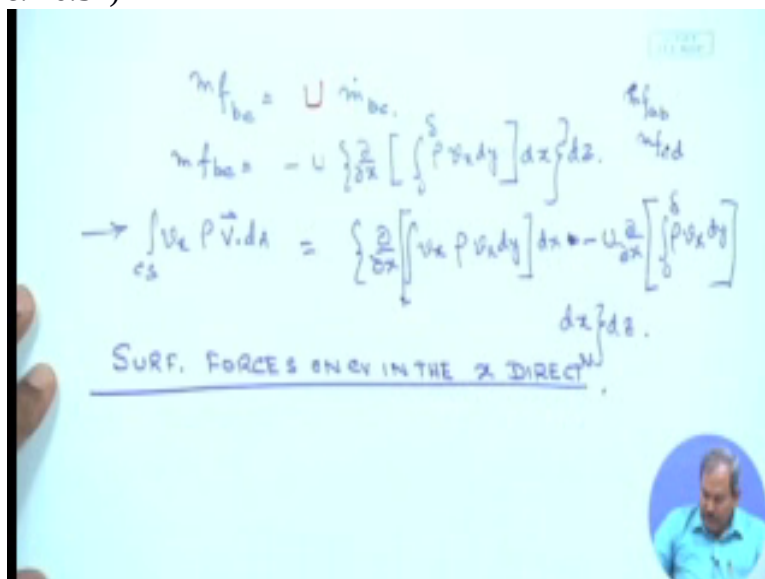 mf_bc = U ṁ_bc.
mf_ab
mf_cd
mf_bc = - U {∂/∂x [∫_0^δ ρ v_x dy] dx} dz.
→ ∫_cs v_x ρ V⃗.dA = {∂/∂x [∫ v_x ρ v_x dy] dx - U ∂/∂x [∫_0^δ ρ v_x dy]
dx} dz.
SURF. FORCES ON CV IN THE x DIRECTN.